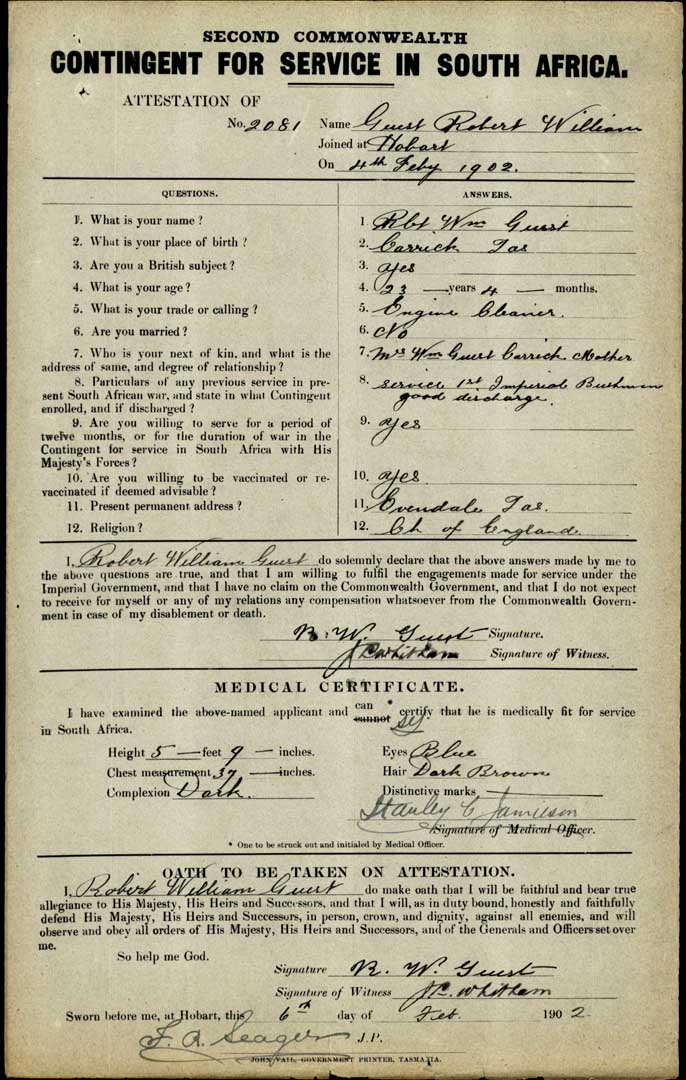 SECOND COMMONWEALTH
CONTINGENT FOR SERVICE IN SOUTH AFRICA.
ATTESTATION OF
No. 2081 Name Guest Robert William
Joined at Hobart
On 4th Feby 1902.
QUESTIONS. ANSWERS.
1. What is your name? 1. Rbt. Wm Guest
2. What is your place of birth? 2. Carrick Tas
3. Are you a British subject? 3. Yes
4. What is your age? 4. 23 years 4 months.
5. What is your trade or calling? 5. Engine Cleaner.
6. Are you married? 6. No
7. Who is your next of kin, and what is the 7. Mrs Wm Guest Carrick Mother
address of same, and degree of relationship?
8. Particulars of any previous service in pre- 8. Service 1st Imperial Bushman
sent South African war, and state in what Contingent good discharge.
enrolled, and if discharged?
9. Are you willing to serve for a period of 9. Yes
twelve months, or for the duration of war in the
Contingent for service in South Africa with His
Majesty's Forces?
10. Are you willing to be vaccinated or re- 10. Yes
vaccinated if deemed advisable?
11. Present permanent address? 11. Evendale Tas.
12. Religion? 12. Ch of England.
I, Robert William Guest do solemnly declare that the above answers made by me to
the above questions are true, and that I am willing to fulfil the engagements made for service under the
Imperial Government, and that I have no claim on the Commonwealth Government, and that I do not expect
to receive for myself or any of my relations any compensation whatsoever from the Commonwealth Govern-
ment in case of my disablement or death.
R. W. Guest Signature.
Whitham Signature of Witness.
MEDICAL CERTIFICATE.
I have examined the above-named applicant and can cannot * certify that he is medically fit for service
in South Africa.
Height 5 feet 9 inches. Eyes Blue
Chest measurement 37 inches. Hair Dark Brown
Complexion Dark. Distinctive marks
Stanley C Jamieson
Signature of Medical Officer.
* One to be struck out and initialed by Medical Officer.
OATH TO BE TAKEN ON ATTESTATION.
I, Robert William Guest do make oath that I will be faithful and bear true
allegiance to His Majesty, His Heirs and Successors, and that I will, as in duty bound, honestly and faithfully
defend His Majesty, His Heirs and Successors, in person, crown, and dignity, against all enemies, and will
observe and obey all orders of His Majesty, His Heirs and Successors, and of the Generals and Officers set over
me.
So help me God.
Signature R. W. Guest
Signature of Witness Whitham
Sworn before me, at Hobart, this 6th day of Feb. 1902
Seager J.P.
JOHN VAIL, GOVERNMENT PRINTER, TASMANIA.